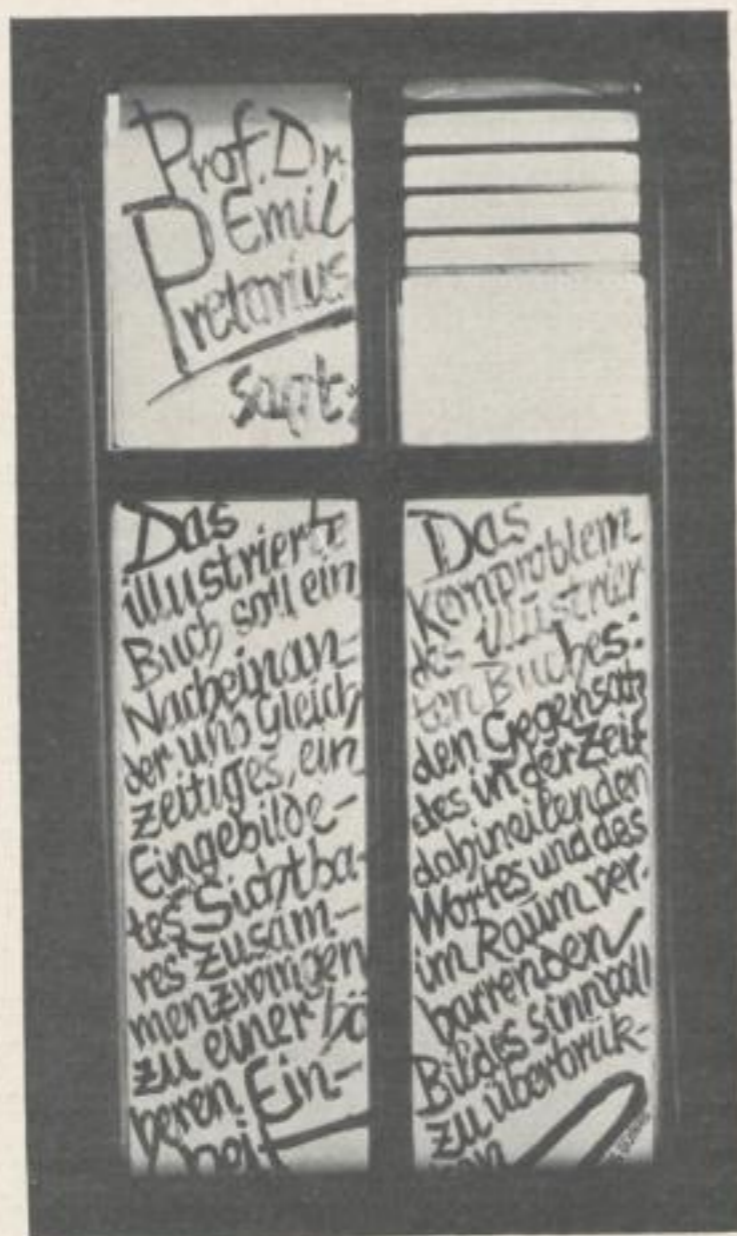 Prof. Dr.
Emil
Pretorius
sagt:
Das
illustrierte
Buch soll ein
Nacheinan-
der und Gleich
zeitiges, ein
Eingebilde-
tes Sichtba-
res zusam-
menzwingen
zu einer hö
heren Ein-
heit
Das
Kernproblem
des illustrier
ten Buches:
den Gegensatz
des in der Zeit
dahineilenden
Wortes und des
im Raum ver-
harrenden
Bildes sinnvoll
zu überbrük-
ken